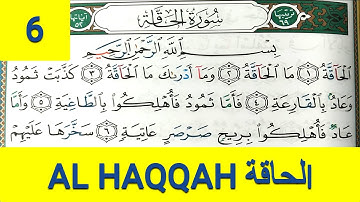 6
ترتيبها ٦٩
سُورَةُ الحَاقَّة
آياتها ٥٢
بِسْمِ اللَّهِ الرَّحْمَٰنِ الرَّحِيمِ
الْحَاقَّةُ ١ مَا الْحَاقَّةُ ٢ وَمَا أَدْرَىٰكَ مَا الْحَاقَّةُ ٣ كَذَّبَتْ ثَمُودُ
وَعَادٌ بِالْقَارِعَةِ ٤ فَأَمَّا ثَمُودُ فَأُهْلِكُوا بِالطَّاغِيَةِ ٥ وَأَمَّا
عَادٌ فَأُهْلِكُوا بِرِيحٍ صَرْصَرٍ عَاتِيَةٍ ٦ سَخَّرَهَا عَلَيْهِمْ
AL HAQQAH الحاقة